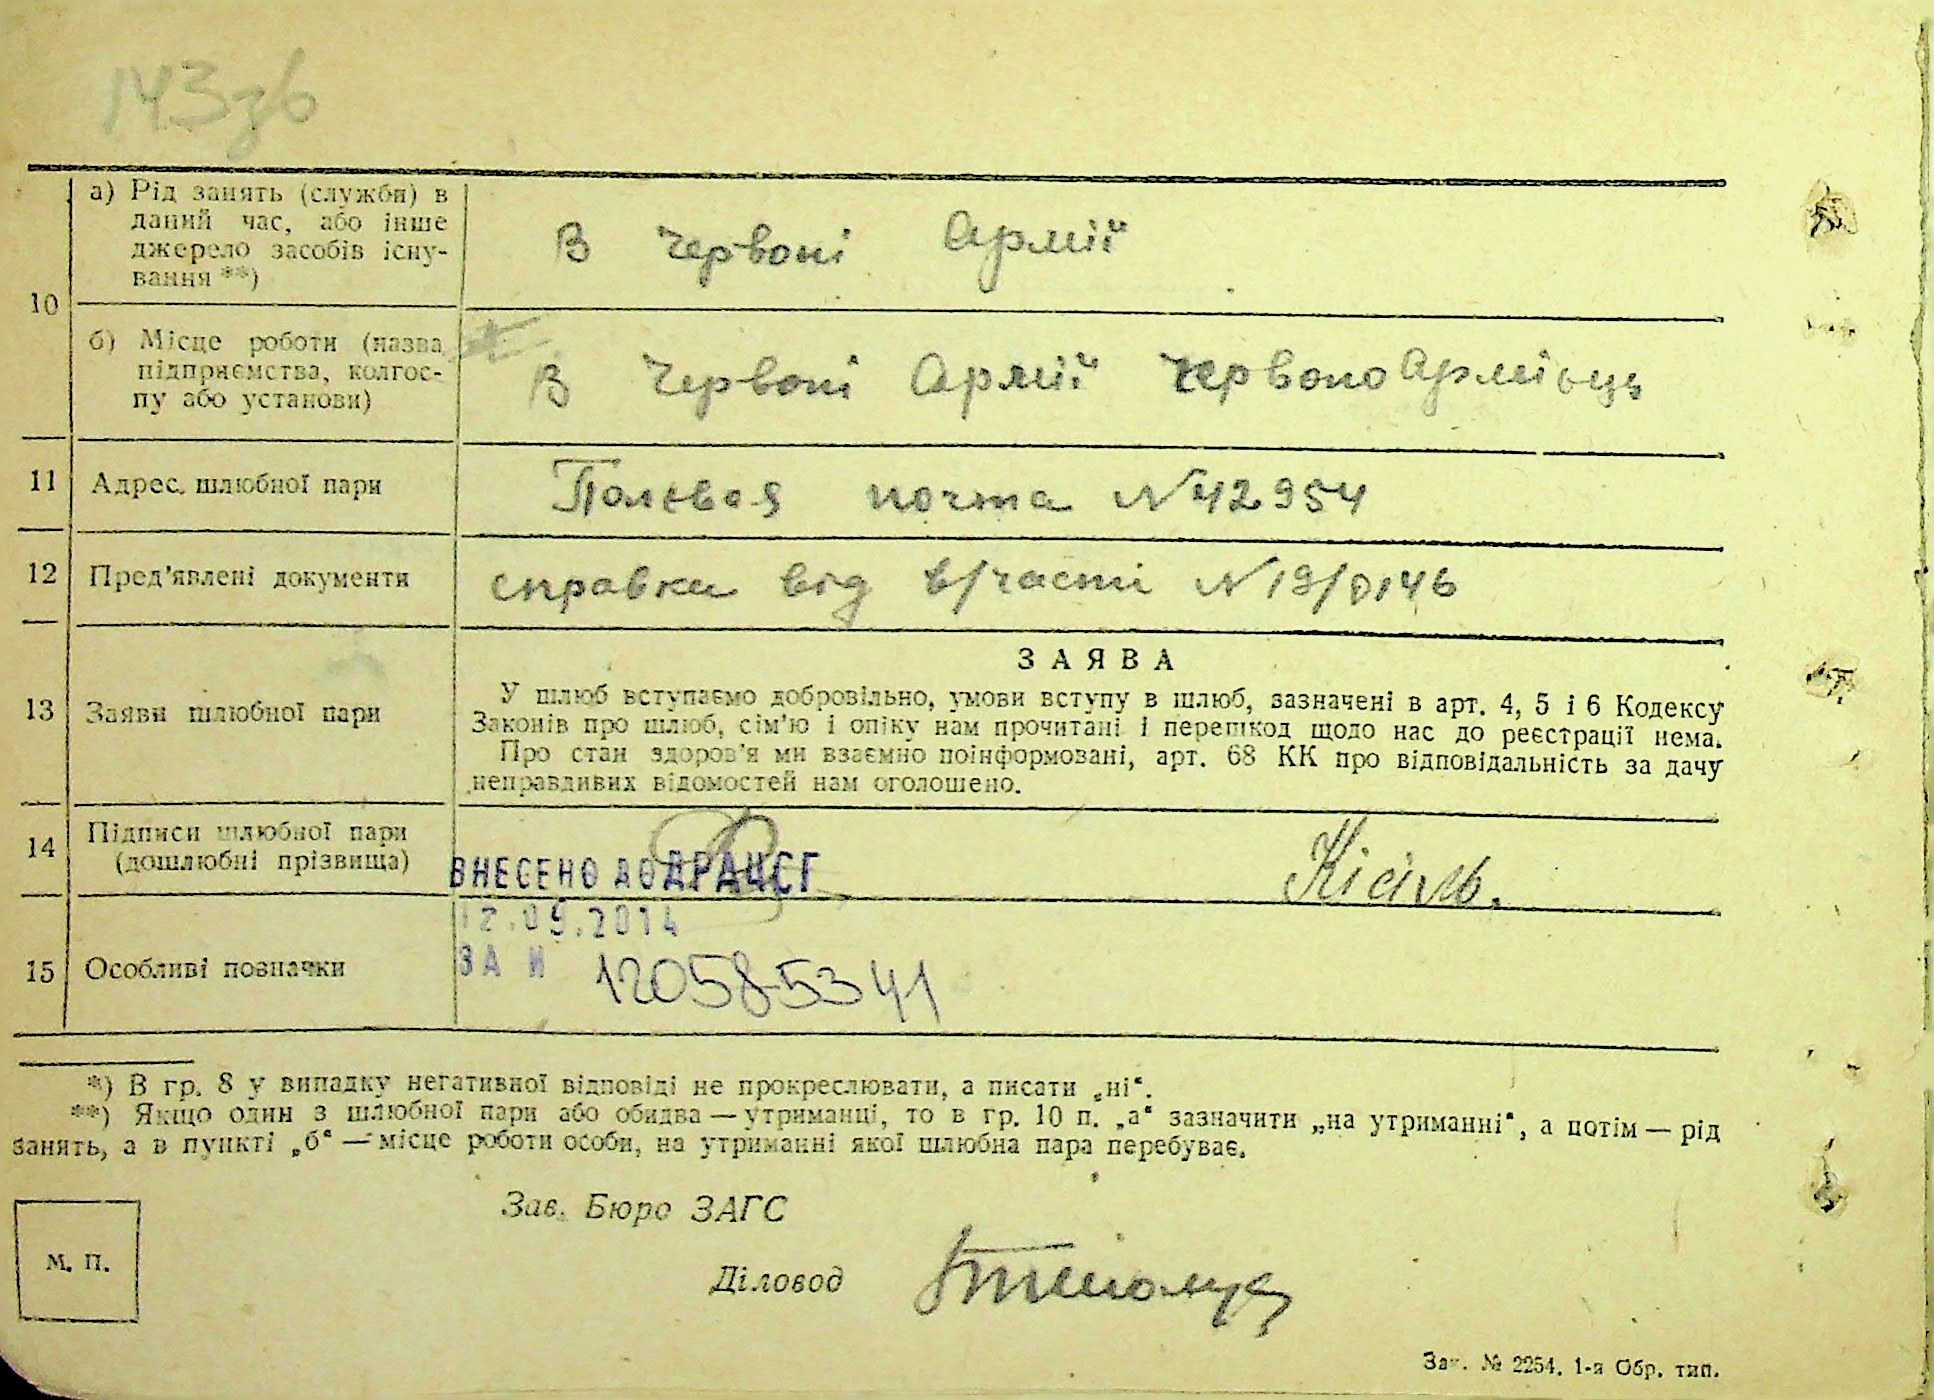 143зв
а) Рід занять (служби) в
даний час, або інше
джерело засобів існу-
вання **)
В червоні Армії
10
б) Місце роботи (назва
підприємства, колгос-
пу або установи)
В червоні Армії червоноАрмієць
11 Адрес. шлюбної пари Полевая почта №42954
12 Пред'явлені документи справка від в/части №19/0146
ЗАЯВА
13 Заяви шлюбної пари
У шлюб вступаємо добровільно, умови вступу в шлюб, зазначені в арт. 4, 5 і 6 Кодексу
Законів про шлюб, сім'ю і опіку нам прочитані і перешкод щодо нас до реєстрації нема.
Про стан здоров'я ми взаємно поінформовані, арт. 68 КК про відповідальність за дачу
неправдивих відомостей нам оголошено.
14 Підписи шлюбної пари
(дошлюбні прізвища)
ВНЕСЕНО ДО ДРАЦСГ
Кісіль.
12.09.2014
15 Особливі позначки
ЗА № 120585341
*) В гр. 8 у випадку негативної відповіді не прокреслювати, а писати „ні“.
**) Якщо один з шлюбної пари або обидва — утриманці, то в гр. 10 п. „а“ зазначити „на утриманні“, а потім — рід
занять, а в пункті „б“ — місце роботи особи, на утриманні якої шлюбна пара перебуває.
Зав. Бюро ЗАГС
м. п.
Діловод
Зак. № 2254. 1-я Обр. тип.